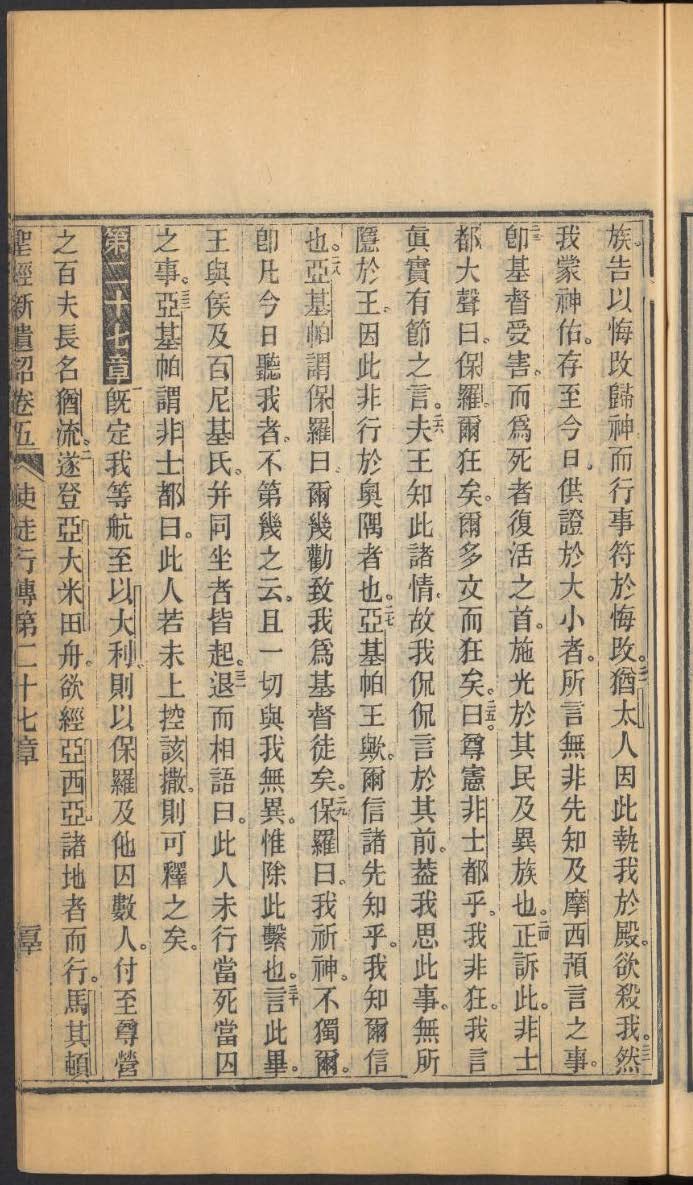 族告以悔改歸神而行事符於悔改。二一猶太人因此執我於殿。欲殺我。二二然
我蒙神佑。存至今日。供證於大小者。所言無非先知及摩西預言之事。
二三卽基督受害。而爲死者復活之首。施光於其民及異族也。二四正訴此。非士
都大聲曰。保羅。爾狂矣。爾多文而狂矣。二五曰。尊憲非士都乎。我非狂。我言
眞實有節之言。二六夫王知此諸情。故我侃侃言於其前。蓋我思此事。無所
隱於王。因此非行於奧隅者也。二七亞基帕王歟。爾信諸先知乎。我知爾信
也。二八亞基帕謂保羅曰。爾幾勸致我爲基督徒矣。二九保羅曰。我祈神。不獨爾。
卽凡今日聽我者。不第幾之云。且一切與我無異。惟除此繫也。三十言此畢。
王與侯及百尼基氏。幷同坐者皆起。三一退而相語曰。此人未行當死當囚
之事。三二亞基帕謂非士都曰。此人若未上控該撒。則可釋之矣。
第二十七章 一旣定我等航至以大利。則以保羅及他囚數人。付至尊營
之百夫長名猶流。二遂登亞大米田舟。欲經亞西亞諸地者而行。馬其頓
聖經新遺詔卷五 使徒行傳第二十七章